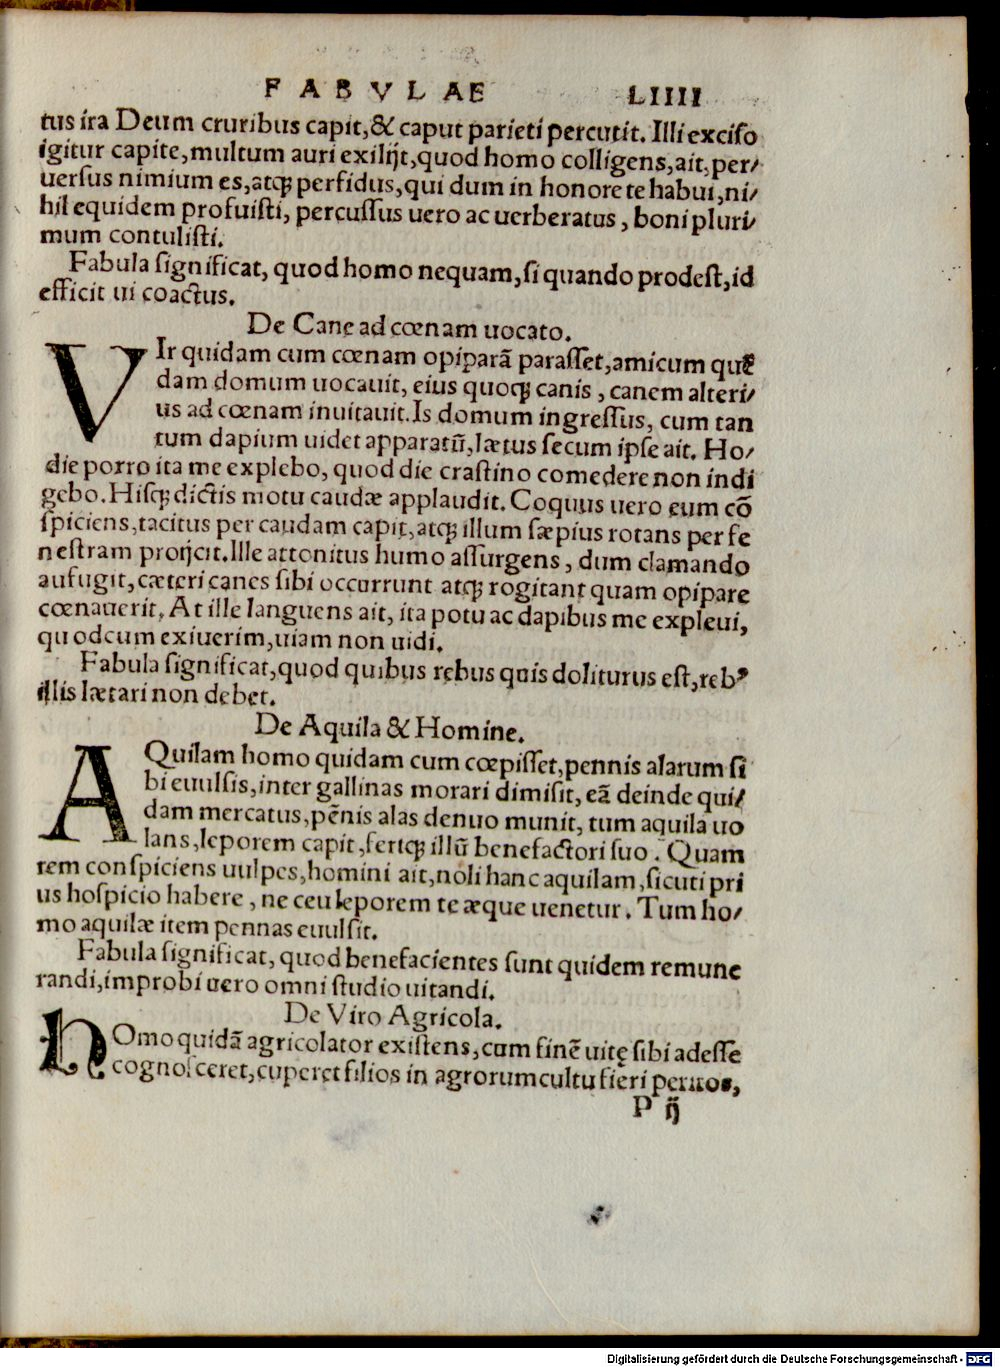 FABVLAE LIIII
tus ira Deum cruribus capit,& caput parieti percutit. Illi exciso
igitur capite,multum auri exilijt,quod homo colligens,ait,per/
uersus nimium es,atq; perfidus,qui dum in honore te habui,ni/
hil equidem profuisti, percussus uero ac uerberatus , boni pluri/
mum contulisti.
Fabula significat, quod homo nequam,si quando prodest,id
efficit ui coactus.
De Cane ad cœnam uocato.
VIr quidam cum cœnam opiparā parasset,amicum quē
dam domum uocauit, eius quoq; canis , canem alteri/
us ad cœnam inuitauit.Is domum ingressus, cum tan
tum dapium uidet apparatū,lætus secum ipse ait. Ho/
die porro ita me explebo, quod die crastino comedere non indi
gebo.Hisq; dictis motu caudæ applaudit. Coquus uero eum cō
spiciens,tacitus per caudam capit,atq; illum sæpius rotans per fe
nestram proijcit.Ille attonitus humo assurgens , dum clamando
aufugit,cæteri canes sibi occurrunt atq; rogitant quam opipare
cœnauerit. At ille languens ait, ita potu ac dapibus me expleui,
quod cum exiuerim,uiam non uidi.
Fabula significat,quod quibus rebus quis doliturus est,rebꝰ
illis lætari non debet.
De Aquila & Homine.
AQuilam homo quidam cum cœpisset,pennis alarum si
bi euulsis,inter gallinas morari dimisit, eā deinde qui/
dam mercatus,pēnis alas denuo munit, tum aquila uo
lans,leporem capit,fertq; illū benefactori suo . Quam
rem conspiciens uulpes,homini ait,noli hanc aquilam,sicuti pri
us hospicio habere , ne ceu leporem te æque uenetur. Tum ho/
mo aquilæ item pennas euulsit.
Fabula significat, quod benefacientes sunt quidem remune
randi,improbi uero omni studio uitandi.
De Viro Agricola.
HOmo quidā agricolator existens,cum finē uitę sibi adesse
cognosceret,cuperet filios in agrorum cultu fieri peritos,
P ij
Digitalisierung gefördert durch die Deutsche Forschungsgemeinschaft - DFG